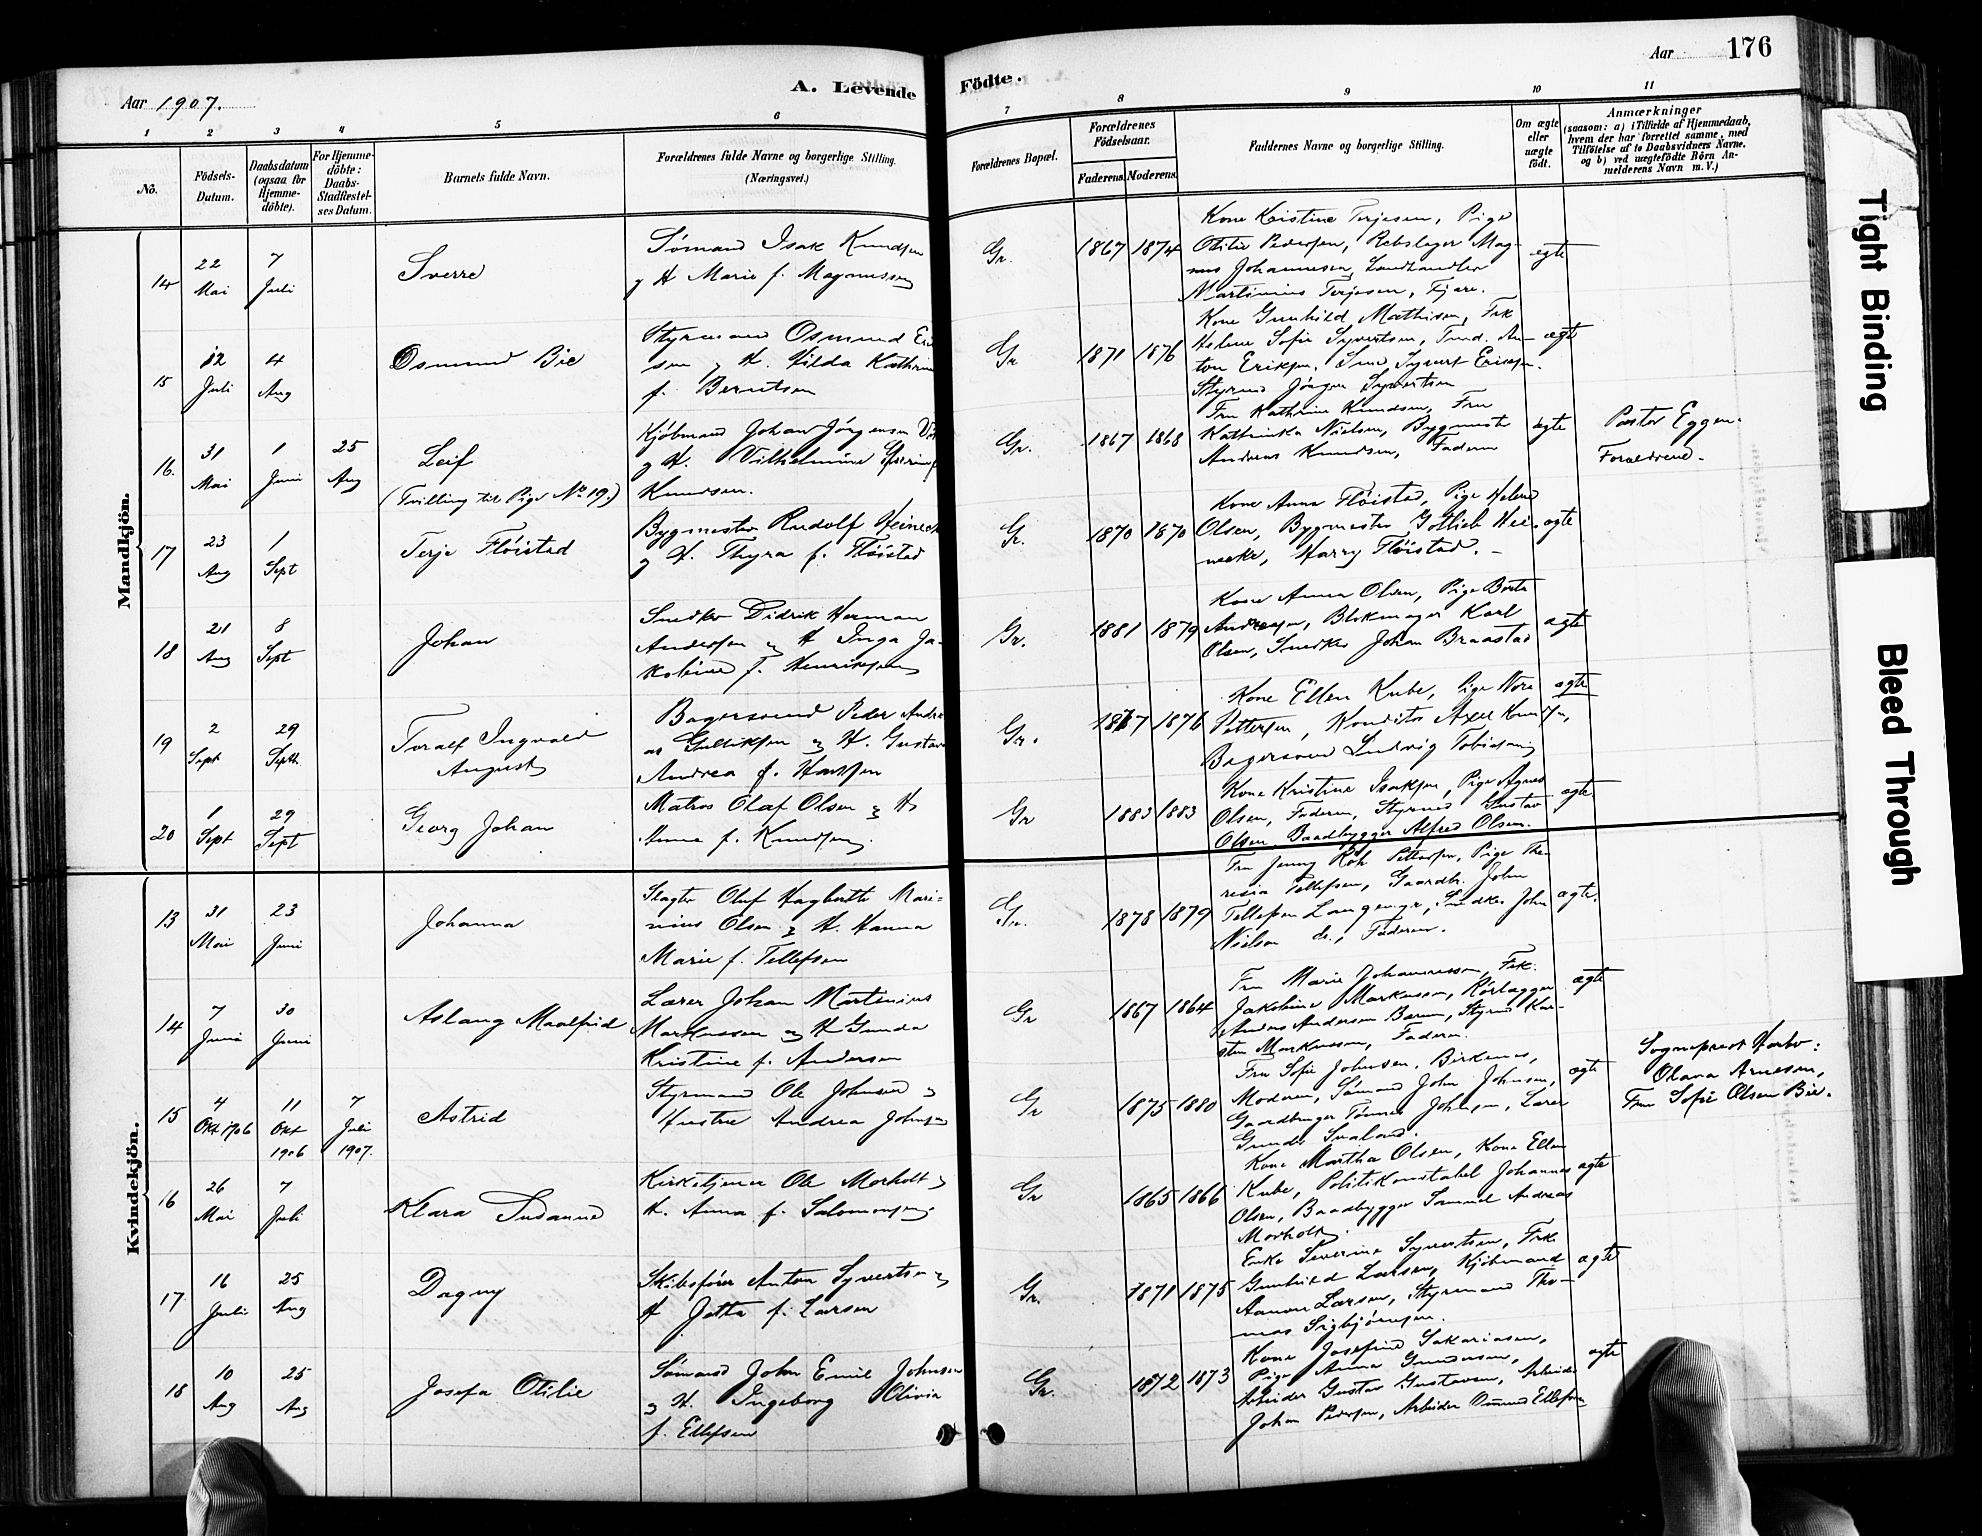 Aar 1907.
A. Levende
Födte.
Aar
176
1
2
3
4
5
6
7
8
9
10
11
No.
Födsels-
Datum.
Daabsdatum
(ogsaa for
Hjemme-
döbte).
For Hjemme-
döbte:
Daabs-
Stadfæstel-
ses Datum.
Barnets fulde Navn.
Forældrenes fulde Navne og borgerlige Stilling.
(Næringsvei.)
Forældrenes Bopæl.
Forældrenes
Födselsaar.
Faderens
Moderens
Faddernes Navne og borgerlige Stilling.
Om ægte
eller
uægte
födt.
Anmærkninger
(saasom: a) i Tilfælde af Hjemmedaab,
hvem der har forrettet samme, med
Tilföielse af to Daabsvidners Navne.
og b) ved uægtefödte Börn An-
melderens Navn m. V.)
Mandkjön.
14
22
Mai
7
Juli
Sverre
Sømand Isak Knudsen
og H Marie f. Magnussen
Gr.
1867 1874
Kone Kristine Terjesen, Pige
Otilie Pedersen, Rebslager Mag-
nus Johannesen, Landhandler
Martinius Terjesen, Fjære.
ægte
15
12
Juli
4
Aug
Osmund Bie
Styrmand Osmund
sen og H. Hilda Kathrine
f. Berntsen
Gr
1871 1876
Kone Gunhild Mathisen, Frk
Helene Sofie Syvertsen, Tmd. An-
ton Eriksen, Smed Syvert Eriksen.
Styrmd Jörgen Syvertsen
ægte
16.
31
Mai
1
Juni
25
Aug
Leif
(Tvilling til Pige No 19.)
Kjöbmand Johan Jörgensen
og H. Vilhelmine
Knudsen.
Gr.
1867 1868
Fru Kathrine Knudsen, Fru
Kathinka Nielsen, Bygmester
Andreas Knudsen, Faderen
ægte
Pastor Eggen.
Forældrene.
17
23
Aug
1
Sept
Terje Flöistad
Bygmester Rudolf
og H. Thyra f. Flöistad
Gr.
1870 1870
Kone Anna Flöistad, Pige Helene
Olsen, Bygmester Gotlieb Hei-
necke, Harry Flöistad.
ægte
18
21
Aug
8
Sept
Johan
Snedker Didrik Herman
Andersen og H Inga Ja-
kobine f. Henriksen
Gr.
1881 1879
Kone Anna Olsen, Pige Berta
Andreasen, Blokmager Karl
Olsen, Snedker Johan Braastad
ægte
19
2
Sept
29
Septb.
Toralf Ingvald
August
Bagersvend Peder Andre
as Gulliksen og H. Gustava
Andrea f. Hansen
Gr.
1867 1876
Kone Ellen Kube, Pige Nora
Pettersen, Konditor Axel Knudsen,
Bagersvend Ludvig Tobiasen
ægte
20
1
Sept
29
Sept
Georg Johan
Matros Olaf Olsen og H
Anna f. Knudsen.
Gr
1883 1883
Kone Kristine Isaksen, Pige Agnes
Olsen, Faderen, Styrmd Gustav
Olsen, Baadbygger Alfred Olsen.
ægte
Kvindekjön.
13
31
Mai
23
Juni
Johanna
Slagter Oluf Hagbarth Mari-
nius Olsen og H. Hanna
Marie f. Tellefsen
Gr.
1878 1879
Fru Jenny Pettersen, Pige The-
resia Tellefsen, Gaardbr. John
Tellefsen Langemyr, Snedker John
Nielsen do, Faderen.
ægte.
14
7
Juni
30
Juni
Aslaug Maalfrid
Lærer Johan Martinius
Markussen og H Gunda
Kristine f. Andersen
Gr
1867 1864
Fru Marie Johannessen, Frk.
Jakobine Markussen,
Anders Andersen Styrmd Kar-
sten Markussen, Faderen.
ægte
15
4
Okt 1906
11
Okt
1906
7
Juli
1907.
Astrid
Styrmand Ole Johnsen og
Hustru Andrea Johnsen
Gr
1875 1880
Fru Sofie Johnsen, Birkenes,
Moderen, Sømand John Johnsen,
Gaardbruger Tönnes Johnsen, Lærer
Gunder Svaland.
ægte
Sogneprest
Olava Arnesen,
Fru Sofie Olsen Bie.
16
26
Mai
7
Juli
Klara Susanne
Kirketjener Ole Morholt og
H. Anna f. Salomonsen.
Gr
1865 1866
Kone Martha Olsen, Kone Ellen
Kube, Politikonstabel Johannes
Olsen, Baadbygger Samuel Andreas
Morholt.
ægte
17.
16
Juli
25
Aug
Dagny
Skibsfører Anton Syvertsen og
H Jetta f. Larsen
Gr.
1871 1875
Enke Severine Syvertsen, Frk
Gunhild Larsen, Kjöbmand
Aanon Larsen, Styrmand Tho-
mas Sigbjörnsen.
ægte
18
10
Aug
25
Aug
Josefa Otilie
Sømand John Emil Johnsen
og H. Ingeborg Olivia
f. Ellefsen
Gr.
1872 1873
Kone Josefine Sakariasen,
Pige Anna Gundersen,
Arbeider Gustav Gustavsen, Arbeider
Johan Pedersen, Arbeider Osmund Ellefsen
ægte
Tight Binding
Bleed Through